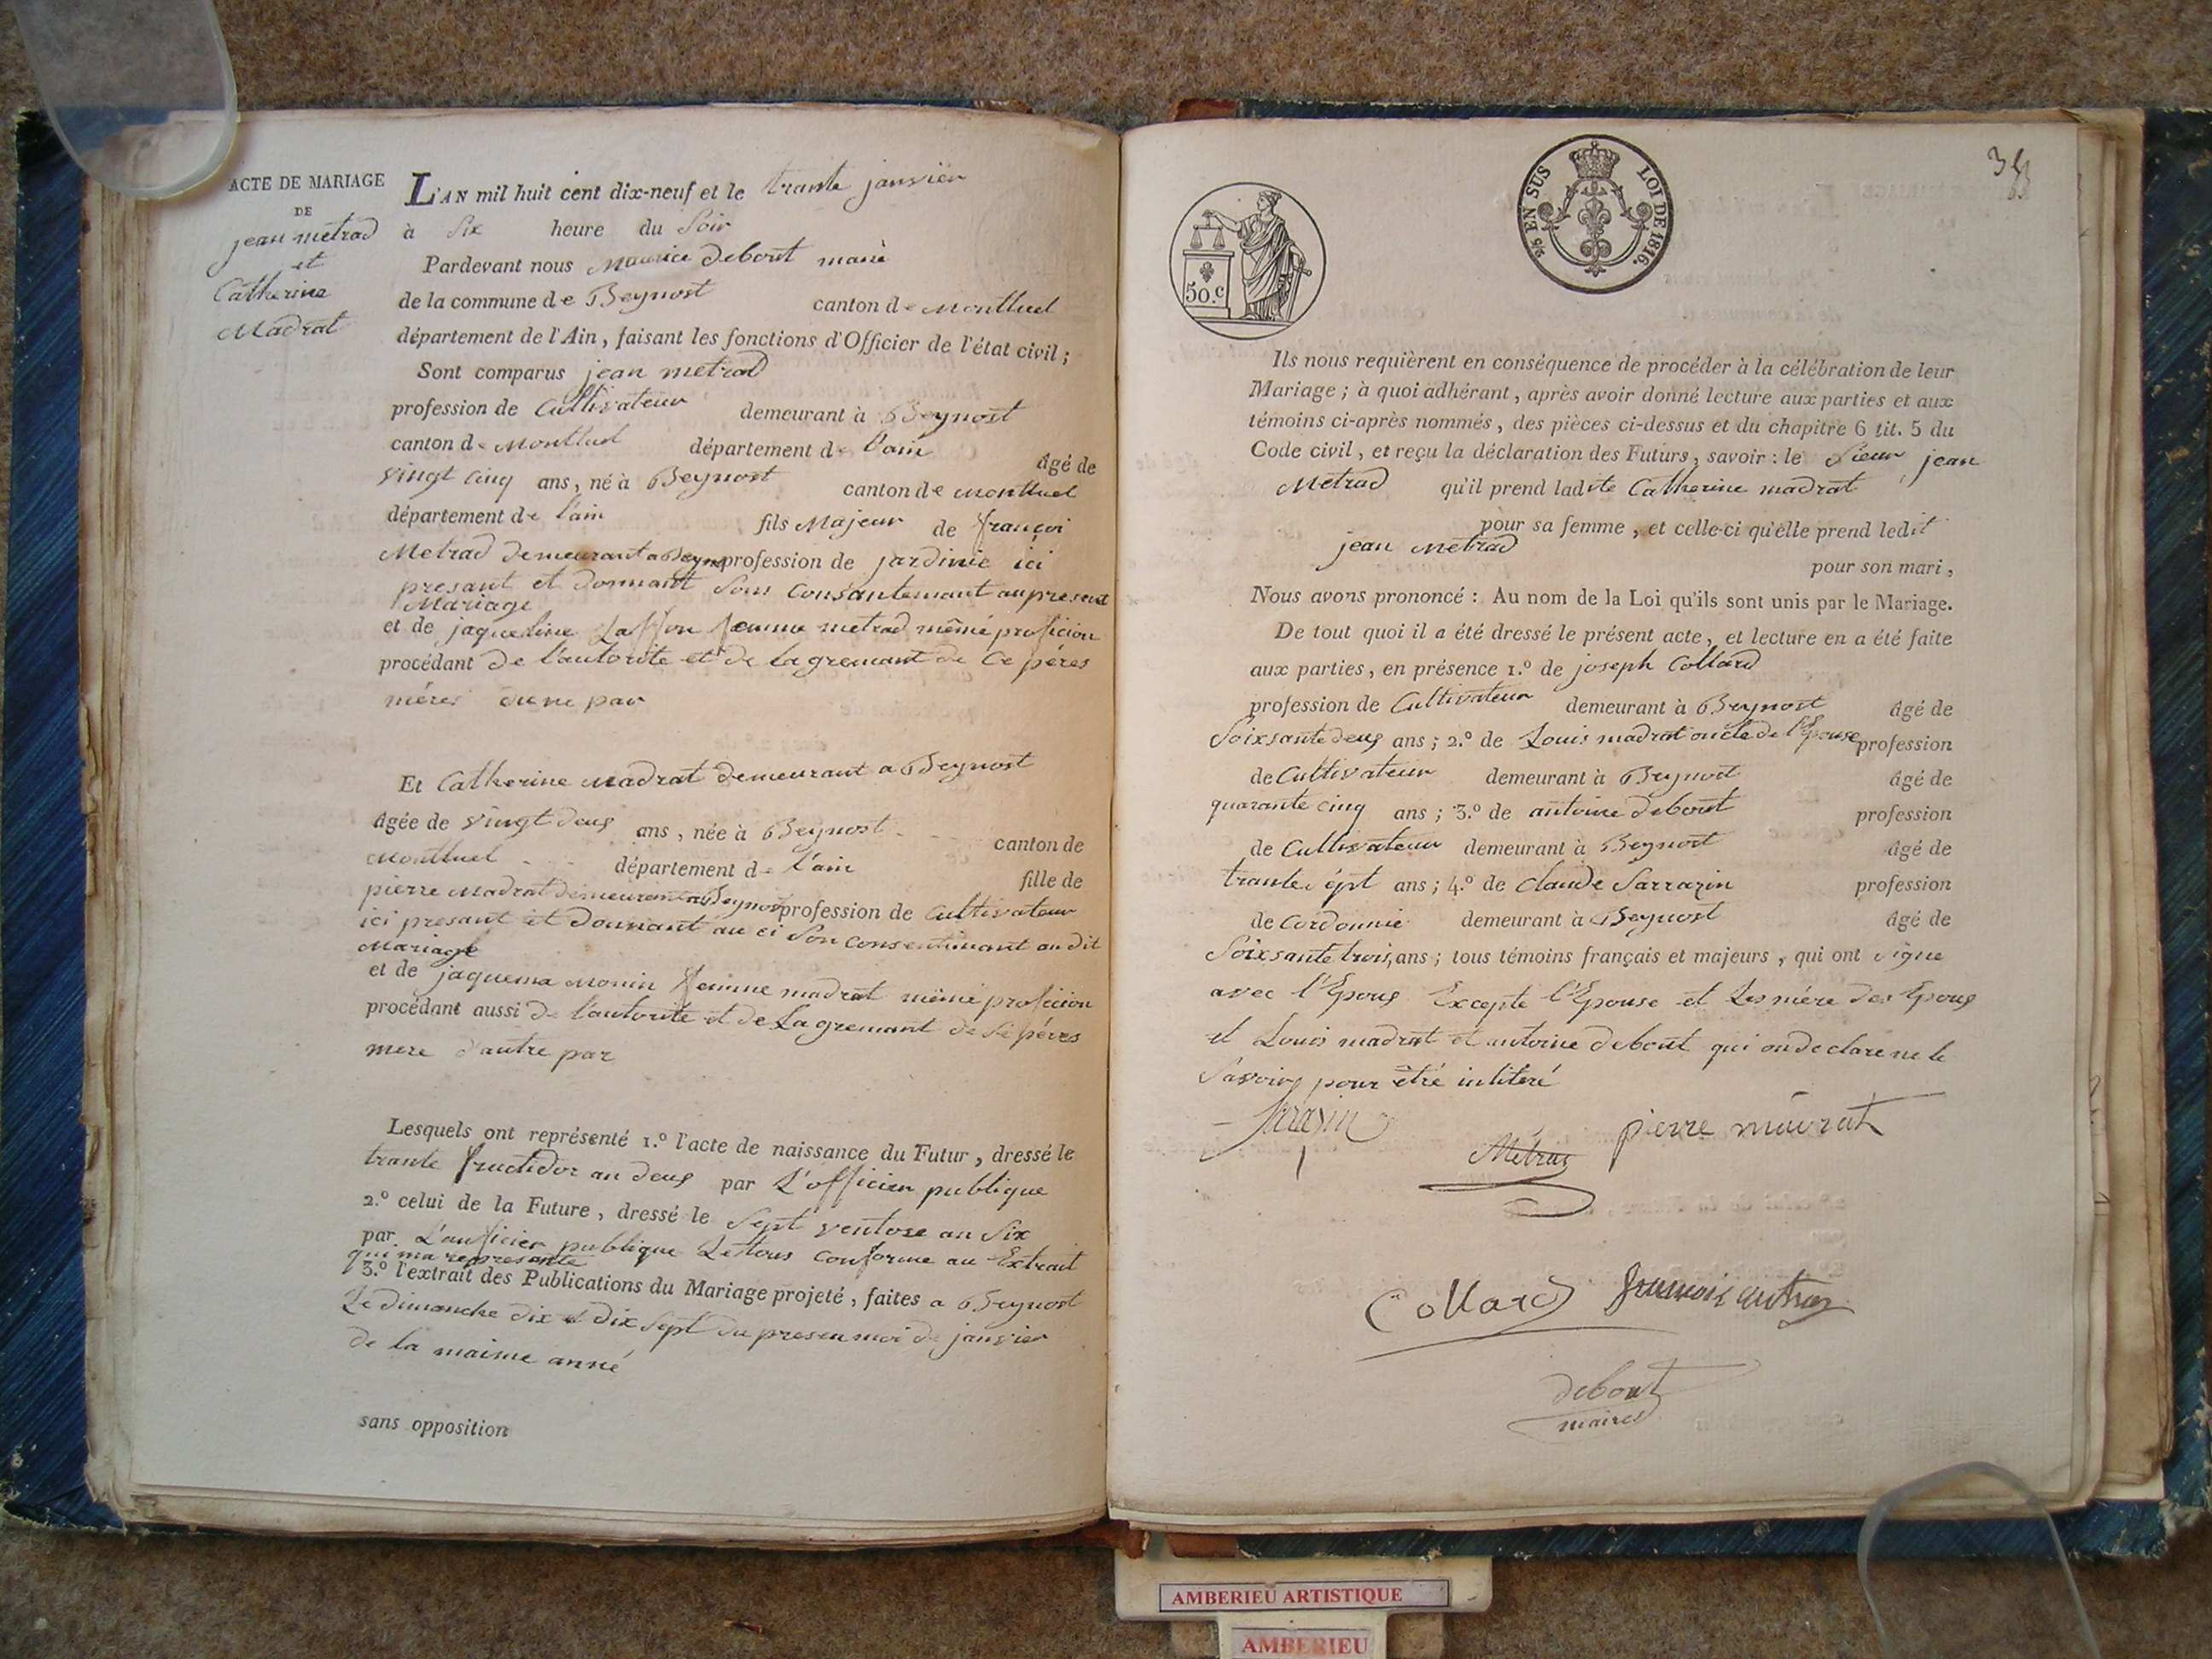 ACTE DE MARIAGE
DE
jean metrad
et
Catherine
Madrat
L'AN mil huit cent dix-neuf et le trante janvier
à Six heure du Soir
Pardevant nous Maurice debout maire
de la commune de Beynost canton de Montluel
département de l'Ain, faisant les fonctions d'Officier de l'état civil;
Sont comparus jean metrad
profession de Cultivateur demeurant à Beynost
canton de Montluel département de l'ain âgé de
vingt cinq ans, né à Beynost canton de Montluel
département de l'ain fils Majeur de françoi
Metrad demeurant a Beyn profession de jardinie ici
presant et donnant Sons Consantemant au present
Mariage
et de jaqueline Laffon femme metrad même profission
procédant de l'autorite et de Lagremant de Ce péres
méres d'une par
Et Catherine Madrat demeurant a Beynost
âgée de vingt deux ans, née à Beynost canton de
Montluel département de l'ain fille de
pierre Madrat demeurent a Beynost profession de Cultivateur
ici presant et donnant au ci Son consentimant au dit
Mariage
et de jaquema Monin femme madrat même profision
procédant aussi de l'autorite et de Lagremant de Sé péres
mere d'autre par
Lesquels ont représenté 1.º l'acte de naissance du Futur, dressé le
trante fructidor an deux par L'officier publique
2.º celui de la Future, dressé le Sept ventose an Six
par L'auficier publique Letous conforme au Extrait
qui ma represante
3.º l'extrait des Publications du Mariage projeté, faites a Beynost
Le dimanche dix et dix Sept du presen moi de janvier
de la maime anné
sans opposition
2/5 EN SUS LOI DE 1816.
50.c
Ils nous requièrent en conséquence de procéder à la célébration de leur
Mariage; à quoi adhérant, après avoir donné lecture aux parties et aux
témoins ci-après nommés, des pièces ci-dessus et du chapitre 6 tit. 5 du
Code civil, et reçu la déclaration des Futurs, savoir: le Sieur jean
Metrad qu'il prend ladite Catherine madrat
pour sa femme, et celle-ci qu'elle prend ledit
jean Metrad
pour son mari,
Nous avons prononcé: Au nom de la Loi qu'ils sont unis par le Mariage.
De tout quoi il a été dressé le présent acte, et lecture en a été faite
aux parties, en présence 1.º de joseph Collard
profession de Cultivateur demeurant à Beynost âgé de
Soixsante deux ans; 2.º de Louis madrat oncle de l'Epouse profession
de Cultivateur demeurant à Beynost âgé de
quarante cinq ans; 3.º de antoine debout profession
de Cultivateur demeurant à Beynost âgé de
trante sépt ans; 4.º de Claude Sarrazin profession
de Cordonnie demeurant à Beynost âgé de
Soixsante trois, ans; tous témoins français et majeurs, qui ont signe
avec l'Epoux Excepte l'Epouse et Les mére des Epoux
et Louis madrat et antoine debout qui on declare ne le
Savoir pour étre inlitere
Sarasin
pierre maurat
Metras
Collard
debout
maires
AMBERIEU ARTISTIQUE
AMBERIEU